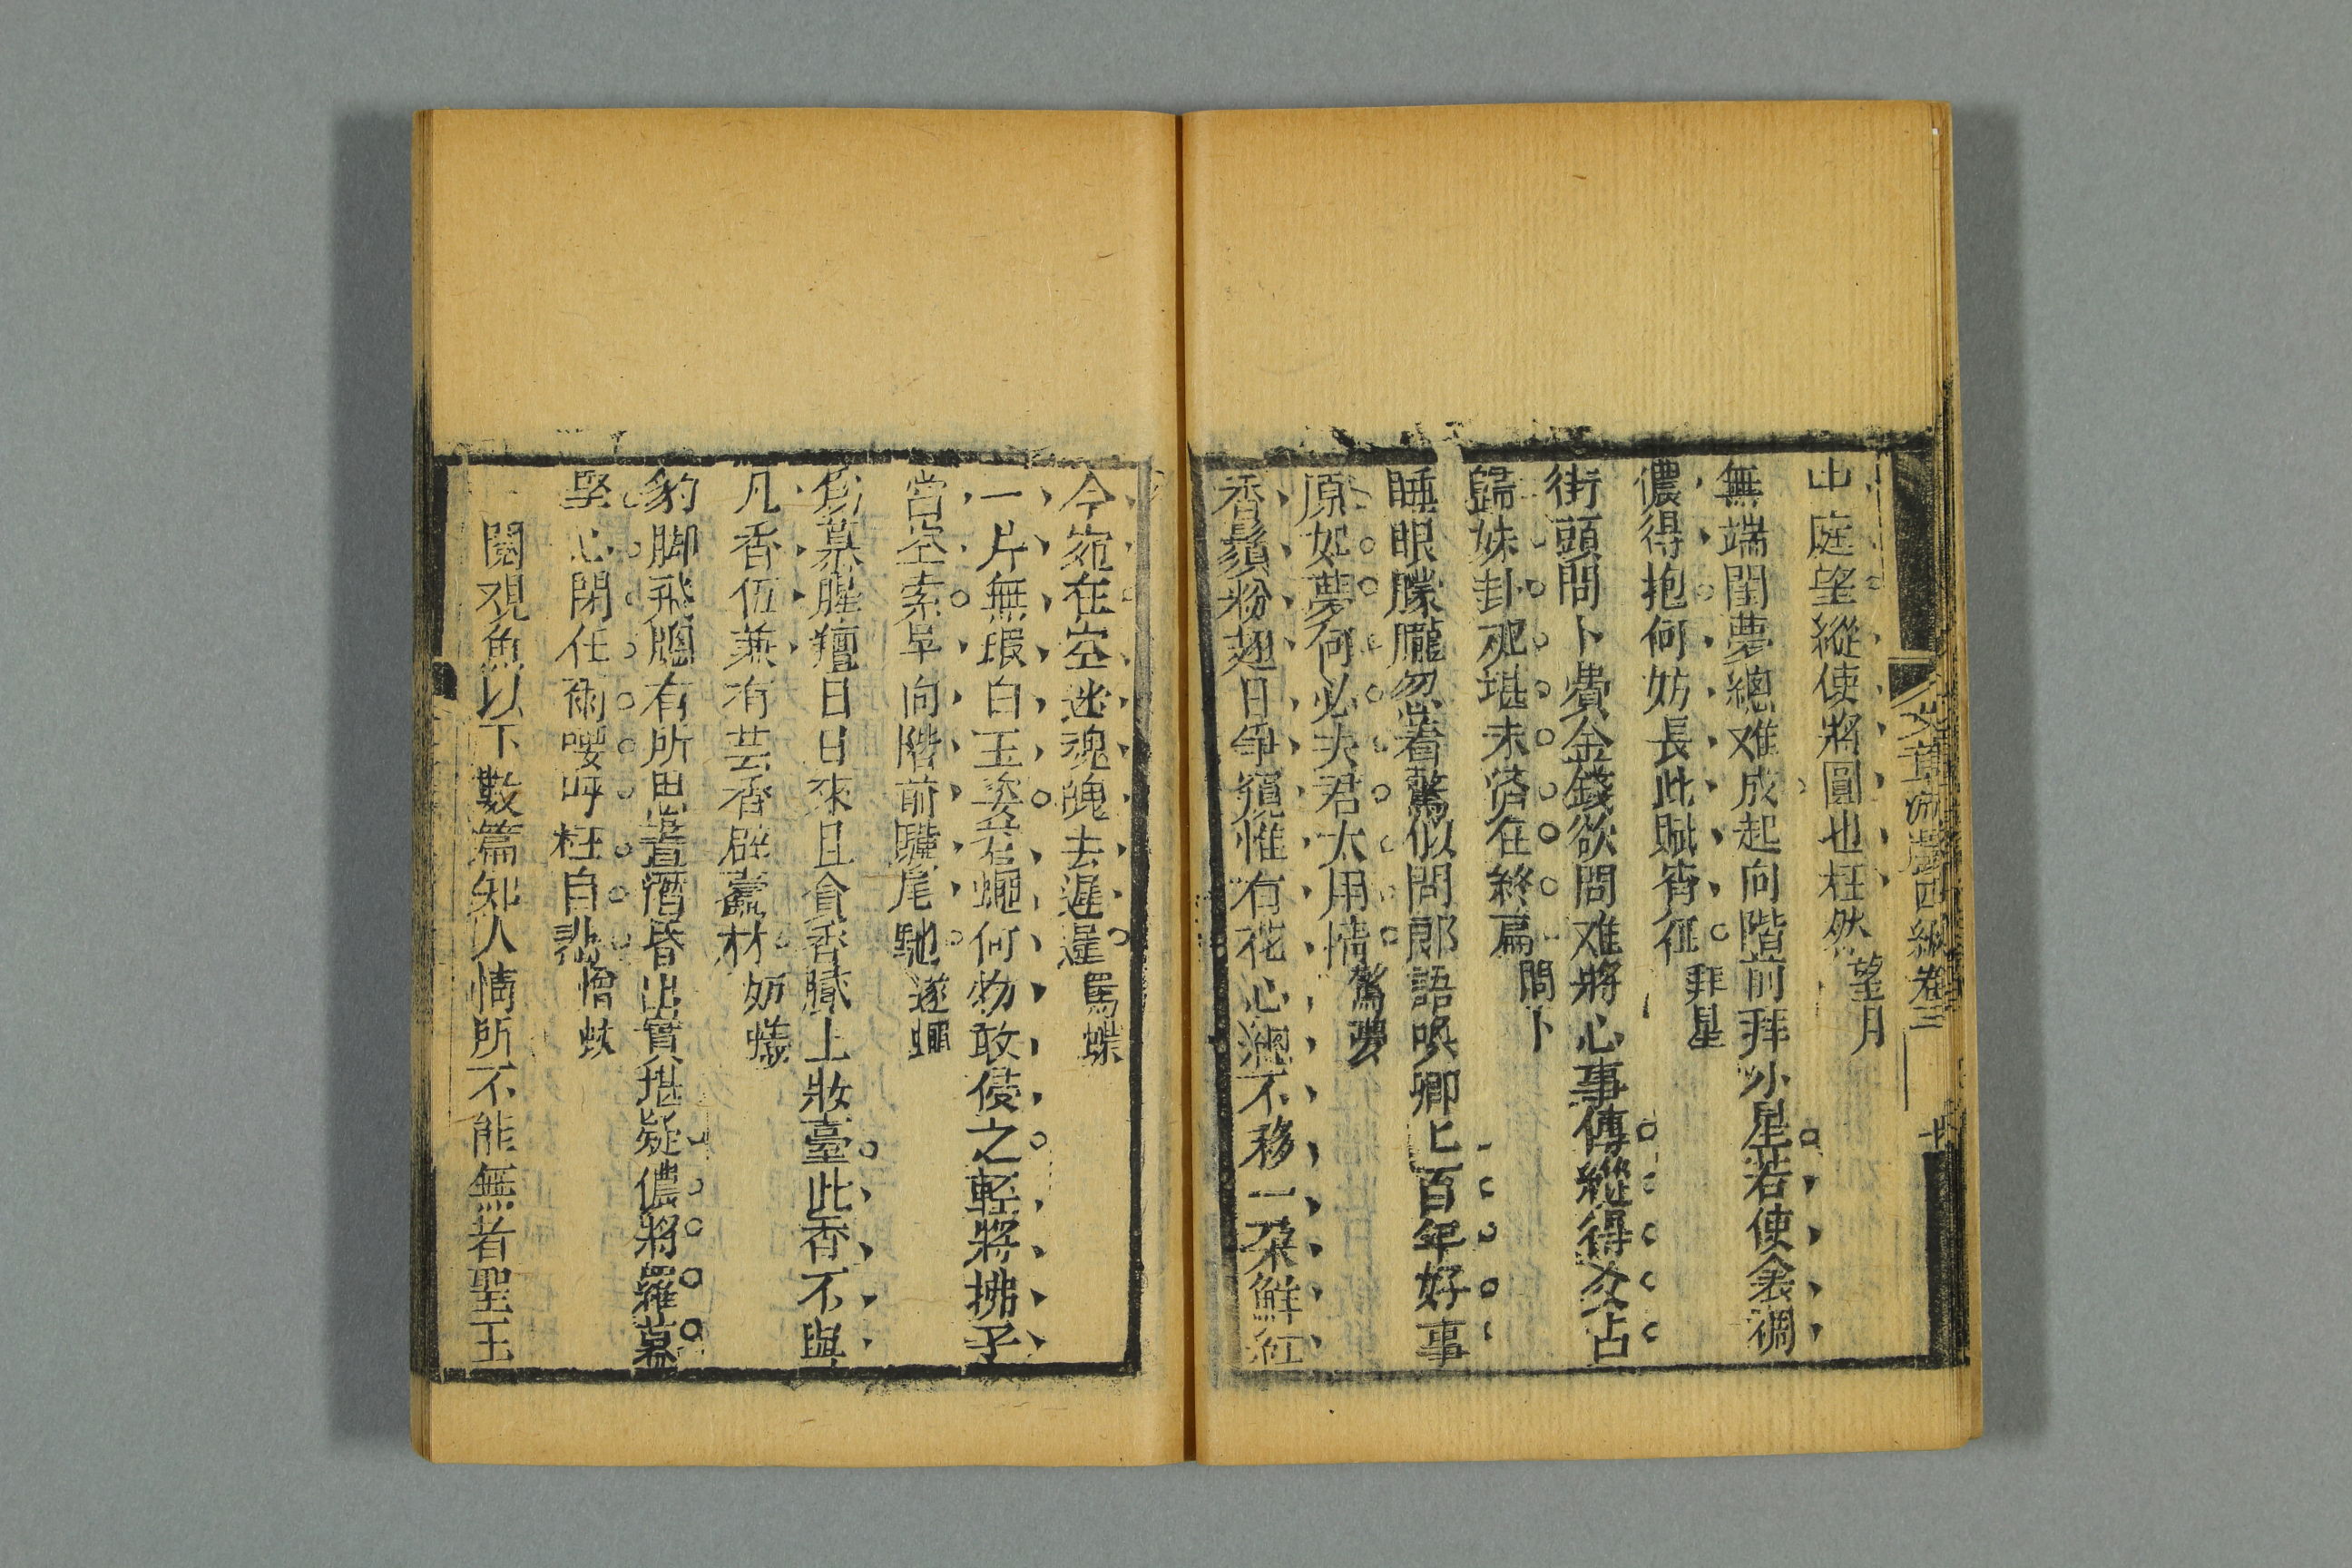 文章游戲四編卷三
出庭望縱使將圓也枉然 望月
無端閨夢總难成起向階前拜小星若使衾裯
儂得抱何妨長此賦宵征 拜星
街頭問卜費金錢欲問难將心事傳縱得爻占
歸妹卦 堪未筮在終篇 問卜
睡眼朦朧忽着驚似聞郎語喚卿卿百年好事
原如夢何必夫君太用情 驚夢
香鬚粉翅日爭窺惟有花心總不移一朶鮮紅
今宛在空迷魂魄去遲遲 罵蝶
一片無瑕白玉姿若蠅何物敢侵之輕將拂子
當空索早向階前驥尾馳 逐蠅
慕腥羶日日來且貪香膩上妝臺此香不與
凡香伍兼有芸香辟蠹材 妨蟻
豹脚飛鳴有所思晝潛昏出實堪疑儂將羅幕
堅心閉任爾嚶呼枉自悲 憎蚊
閱观魚以下數篇知人情所不能無者聖王